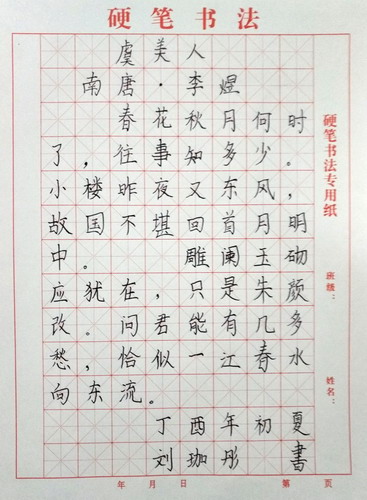 硬笔书法
虞美人
南唐·李煜
春花秋月何时
了，往事知多少。
小楼昨夜又东风，
故国不堪回首月明
中。雕阑玉砌
应犹在，只是朱颜
改。问君能有几多
愁，恰似一江春水
向东流。
丁酉年初夏
刘珈彤書
硬笔书法专用纸
班级：
姓名：
年月日
第页